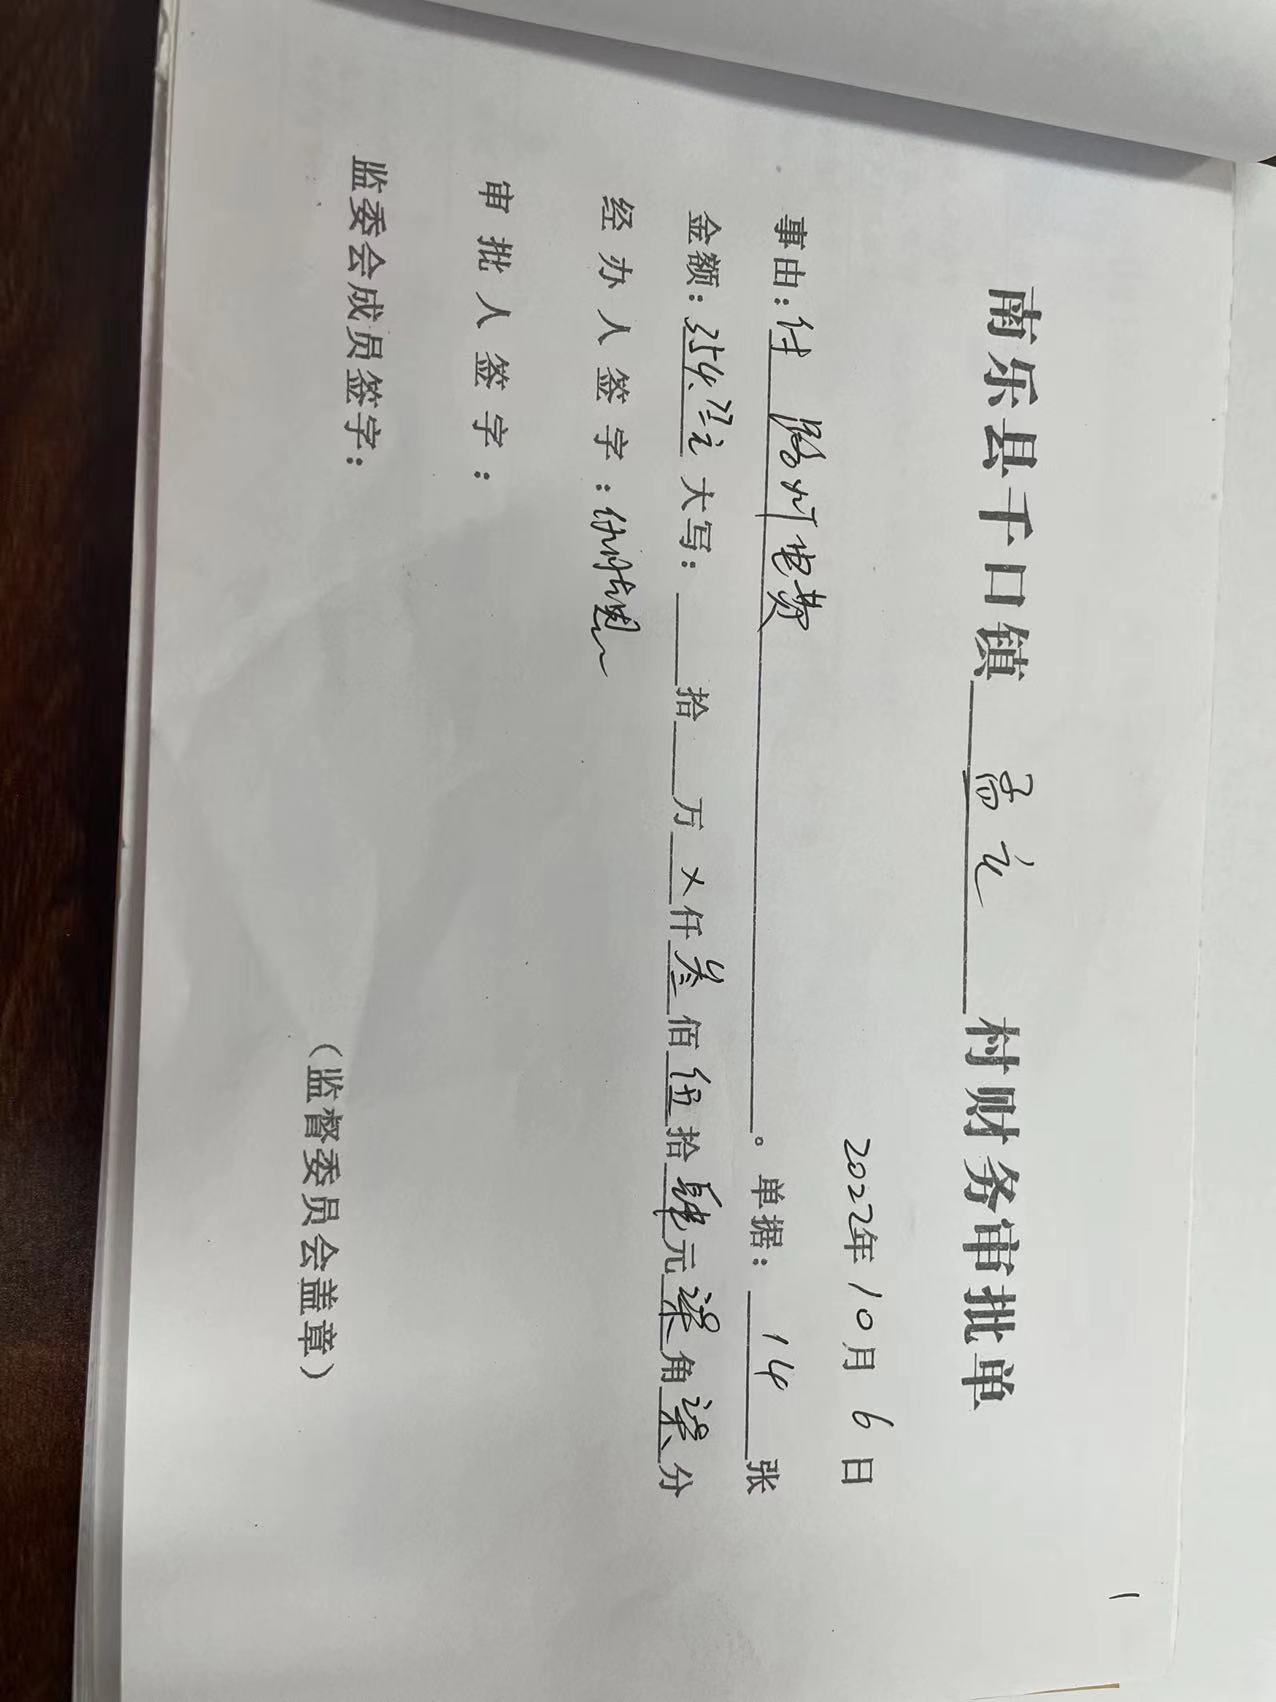 南乐县千口镇 孟庄 村财务审批单
2022年10月6日
事由：付 路灯电费 。单据：14张
金额：354.77元 大写： 拾 万 ×仟叁佰伍拾肆元柒角柒分
经办人签字：
审批人签字：
监委会成员签字：
（监督委员会盖章）
1